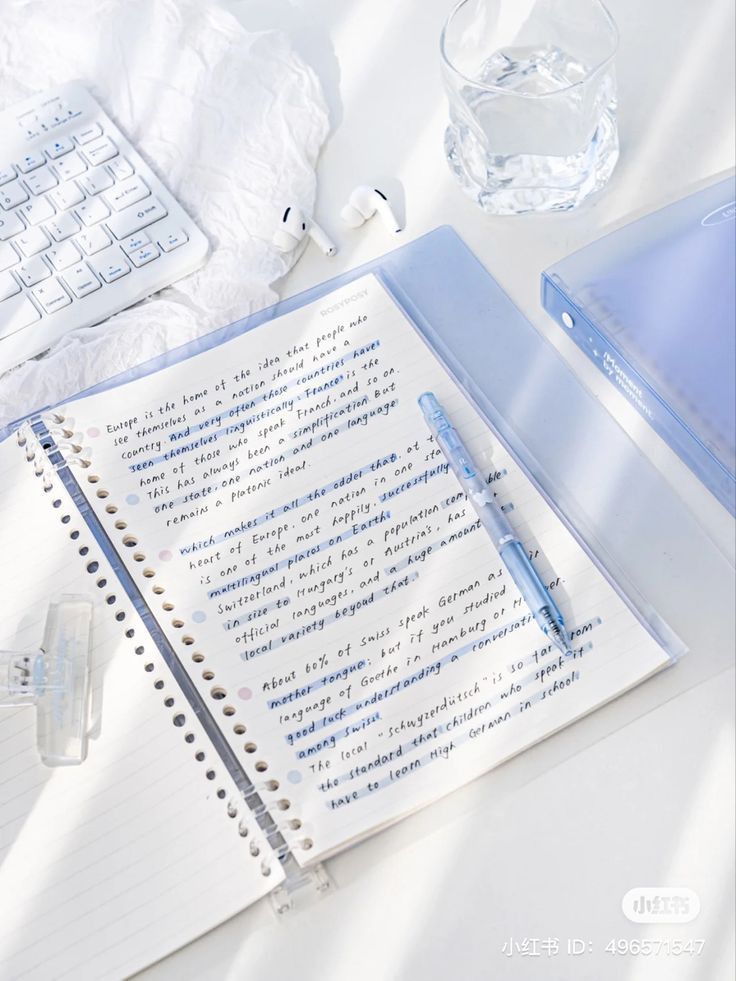 ROSYPOSY
Europe is the home of the idea that people who
see themselves as a nation should have a
country. And very often those countries have
seen themselves linguistically: France is the
home of those who speak French, and so on.
This has always been a simplification. But
one state, one nation and one language
remains a platonic ideal.
which makes it all the odder that, at the
heart of Europe, one nation in one state
is one of the most happily, successfully
multilingual places on Earth.
Switzerland, which has a population comparable
in size to Hungary's or Austria's, has
official languages, and a huge amount of
local variety beyond that.
About 60% of Swiss speak German as
mother tongue; but if you studied
language of Goethe in Hamburg or
good luck understanding a conversation
among Swiss.
The local "Schwyzerdütsch" is so far from
the standard that children who speak it
have to learn High German in school.
Moment
by moment
Enter
Shift
小红书
小红书 ID: 496571547